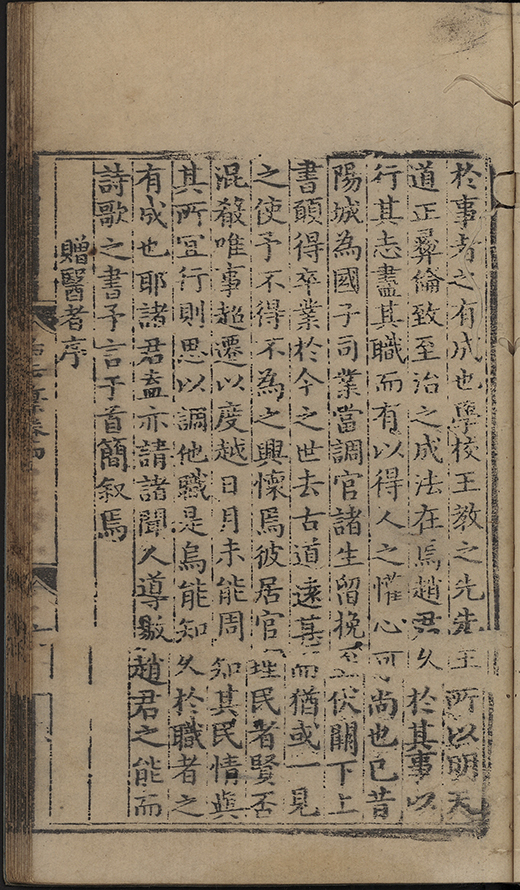 於事者之有成也學校王教之先先王所以明天
道正彝倫致至治之成法在焉趙君久於其事以
行其志盡其職而有以得人之懽心可尚也已昔
陽城為國子司業當調官諸生留挽至伏闕下上
書願得卒業於今之世去古道遠甚而猶或一見
之使予不得不為之興懷焉彼居官理民者賢否
混殽唯事超遷以度越日月未能周知其民情與
其所宜行則思以調他職是烏能知久於職者之
有成也耶諸君盍亦請諸聞人導敭趙君之能而
詩歌之書予言于首簡叙焉
贈醫者序